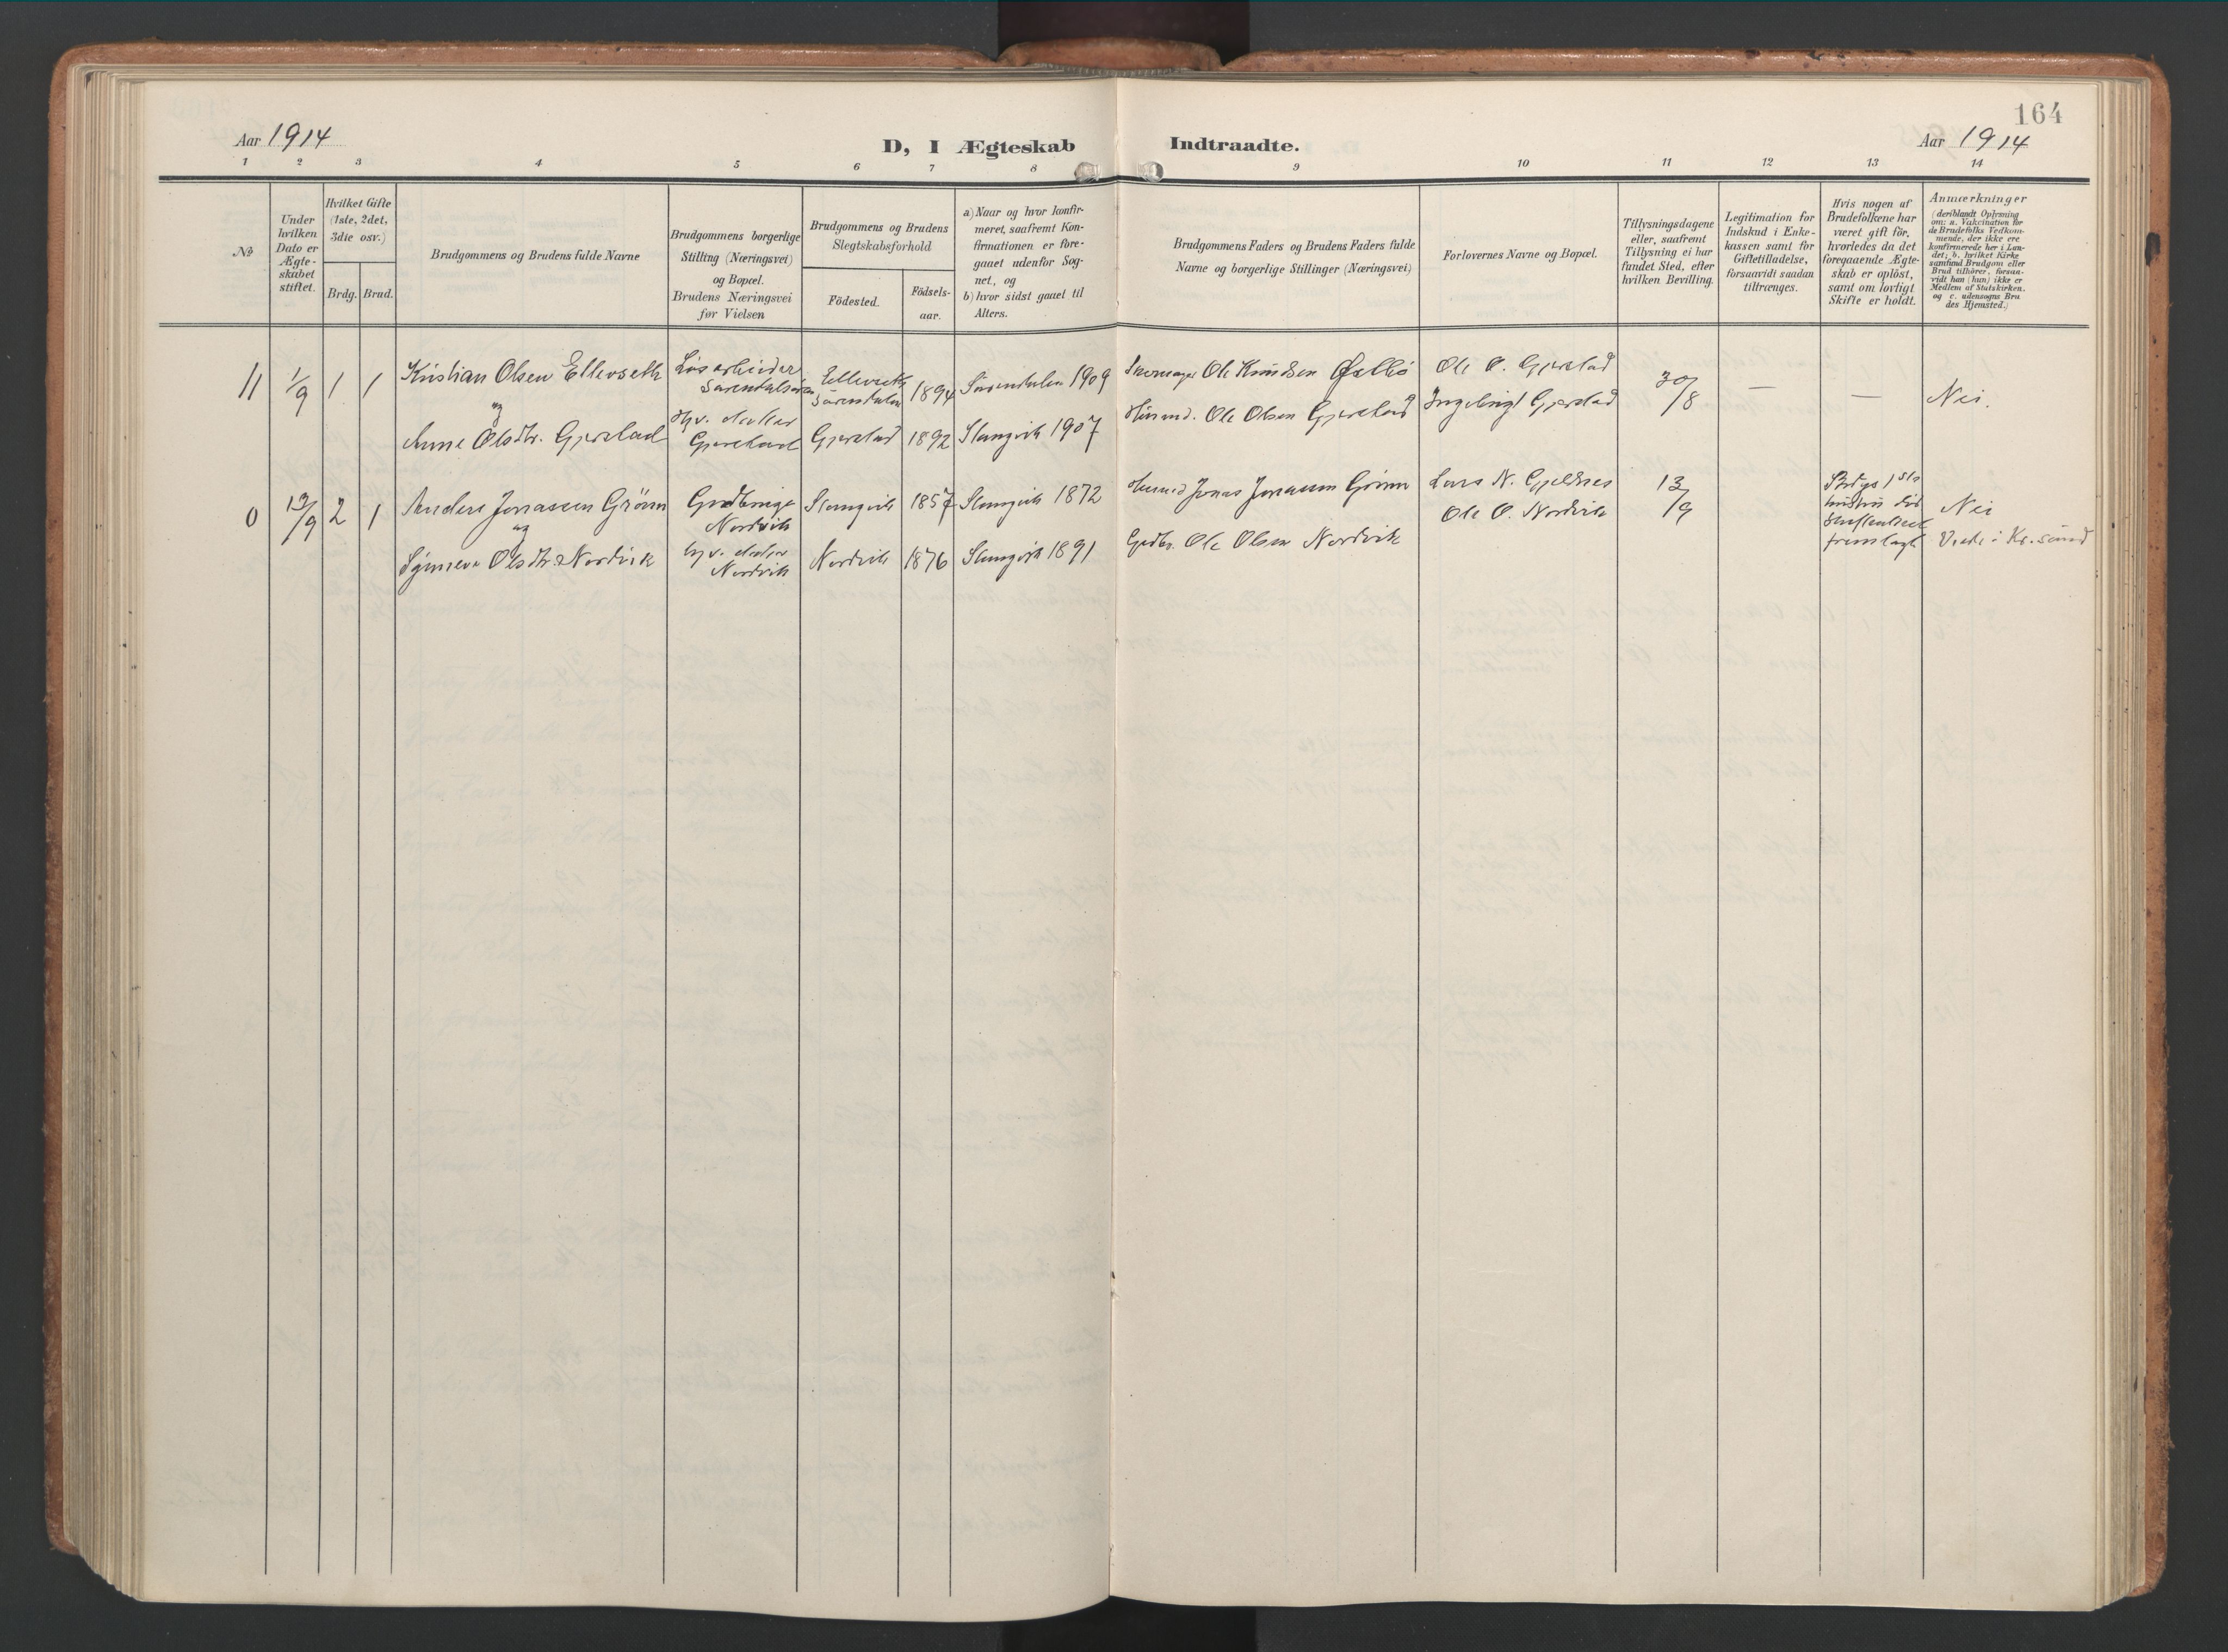 164
Aar 1914
D, I Ægteskab Indtraadte.
Aar 1914
1 2 3 4 5 6 7 8 9 10 11 12 13 14
№
Under
hvilken
Dato er
Ægte-
skabet
stiftet.
Hvilket Gifte
(1ste, 2det,
3die osv.)
Brdg. Brud.
Brudgommens og Brudens fulde Navne
Brudgommens borgerlige
Stilling (Næringsvei)
og Bopæl.
Brudens Næringsvei
før Vielsen
Brudgommens og Brudens
Slegtskabsforhold
Födested.
Födsels-
aar.
a) Naar og hvor konfir-
meret, saafremt Kon-
firmationen er fore-
gaaet udenfor Sog-
net, og
b) hvor sidst gaaet til
Alters.
Brudgommens Faders og Brudens Faders fulde
Navne og borgerlige Stillinger (Næringsvei)
Forlovernes Navne og Bopæl.
Tillysningsdagene
eller, saafremt
Tillysning ei har
fundet Sted, efter
hvilken Bevilling.
Legitimation for
Indskud i Enke-
kassen samt for
Giftetilladelse,
forsaavidt saadan
tiltrænges.
Hvis nogen af
Brudefolkene har
været gift för,
hvorledes da det
foregaaende Ægte-
skab er oplöst,
samt om lovligt
Skifte er holdt.
Anmærkninger
(deriblandt Oplysning
om: a. Vakcination for
de Brudefolks Vedkom-
mende, der ikke ere
konfirmerede her i Lan-
det; b. hvilket Kirke
samfund Brudgom eller
Brud tilhører, forsaa-
vidt han (hun) ikke er
Medlem af Statskirken.
og c. udensogns Bru
des Hjemsted.)
11 1/9 1 1 Kristian Olsen Ellevseth
og
Anne Olsdtr. Gjerstad
Løsarbeider
Surendalsøren
Gjerstad
Ellevseth
Surendalen
1894 Surendalen 1909
Gjerstad 1892 Stangvik 1907
Ole Knudsen
Husmd. Ole Olsen Gjerstad
Ole O. Gjerstad
Ingebrigt Gjerstad
30/8 — — Nei.
0 13/9 2 1 Anders Jonassen Grönn
og
Synneve Olsdtr. Nordvik
Gardbruger
Nordvik
Nordvik
Stangvik 1857 Stangvik 1872
Nordvik 1876 Stangvik 1891
Husmd Jonas Jonassen Grönn
Gardbr. Ole Olsen Nordvik
Lars N. Gjeldnes
Ole O. Nordvik
13/9
Brdgs 1ste
hustru död
Skifteattest
fremlagt
Nei
Viede i Kr.sund